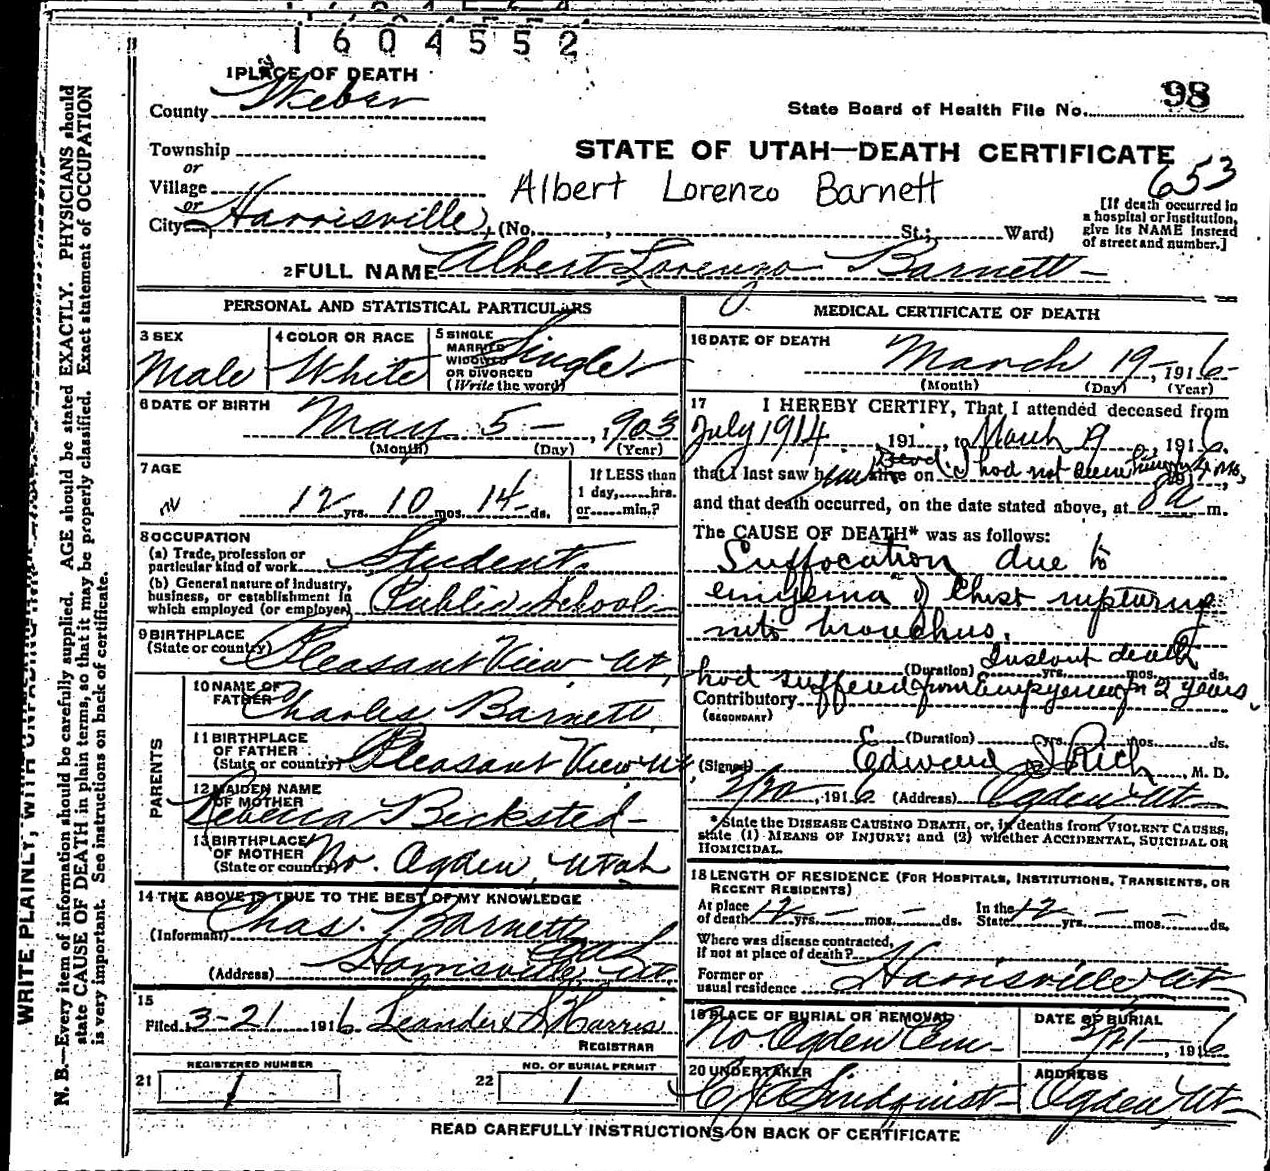 1604552
1 PLACE OF DEATH
County Weber
State Board of Health File No. 98
STATE OF UTAH—DEATH CERTIFICATE
Township
or
Village
or
City Harrisville, (No. , St.; Ward)
Albert Lorenzo Barnett
653
[If death occurred in
a hospital or institution,
give its NAME instead
of street and number.]
2 FULL NAME Albert Lorenzo Barnett
PERSONAL AND STATISTICAL PARTICULARS
3 SEX
Male
4 COLOR OR RACE
White
5 SINGLE
MARRIED
WIDOWED
OR DIVORCED
(Write the word)
Single
6 DATE OF BIRTH
May 5 - , 1903
(Month) (Day) (Year)
7 AGE
12 yrs. 10 mos. 14 ds.
If LESS than
1 day, hrs.
or min.?
8 OCCUPATION
(a) Trade, profession or
particular kind of work Student
(b) General nature of industry,
business, or establishment in
which employed (or employer) Public School
9 BIRTHPLACE
(State or country) Pleasant View Ut,
PARENTS
10 NAME OF
FATHER Charles Barnett
11 BIRTHPLACE
OF FATHER
(State or country) Pleasant View Ut
12 MAIDEN NAME
OF MOTHER Rebecca Becksted
13 BIRTHPLACE
OF MOTHER
(State or country) No. Ogden, Utah
14 THE ABOVE IS TRUE TO THE BEST OF MY KNOWLEDGE
(Informant) Chas. Barnett
(Address) Harrisville, Ut
15
Filed 3-21 1916 Leander S Harris
REGISTRAR
REGISTERED NUMBER
21 1
NO. OF BURIAL PERMIT
22 1
MEDICAL CERTIFICATE OF DEATH
16 DATE OF DEATH
March 19-, 1916
(Month) (Day) (Year)
17 I HEREBY CERTIFY, That I attended deceased from
July 1914 , 191 , to March 19 , 1916,
that I last saw him alive on I had not seen him for 4 mo,
and that death occurred, on the date stated above, at 8 a m.
The CAUSE OF DEATH* was as follows:
Suffocation due to
empyema of Chest rupturing
into bronchus.
Instant death
(Duration) yrs. mos. ds.
had suffered from Empyema for 2 years.
Contributory
(SECONDARY)
(Duration) yrs. mos. ds.
(Signed) Edward I Rich, M. D.
3/20, 1916 (Address) Ogden Ut
*State the DISEASE CAUSING DEATH, or, in deaths from VIOLENT CAUSES,
state (1) MEANS OF INJURY; and (2) whether ACCIDENTAL, SUICIDAL OR
HOMICIDAL.
18 LENGTH OF RESIDENCE (FOR HOSPITALS, INSTITUTIONS, TRANSIENTS, OR
RECENT RESIDENTS)
At place
of death 12 yrs. - mos. - ds. In the
State 12 yrs. - mos. - ds.
Where was disease contracted,
if not at place of death?
Former or
usual residence Harrisville Ut
19 PLACE OF BURIAL OR REMOVAL
No. Ogden Cem-
DATE OF BURIAL
3/21 , 1916
20 UNDERTAKER
Lindquist
ADDRESS
Ogden Ut
READ CAREFULLY INSTRUCTIONS ON BACK OF CERTIFICATE
WRITE PLAINLY, WITH UNFADING INK
N. B.—Every item of information should be carefully supplied. AGE should be stated EXACTLY. PHYSICIANS should
state CAUSE OF DEATH in plain terms, so that it may be properly classified. Exact statement of OCCUPATION
is very important. See instructions on back of certificate.